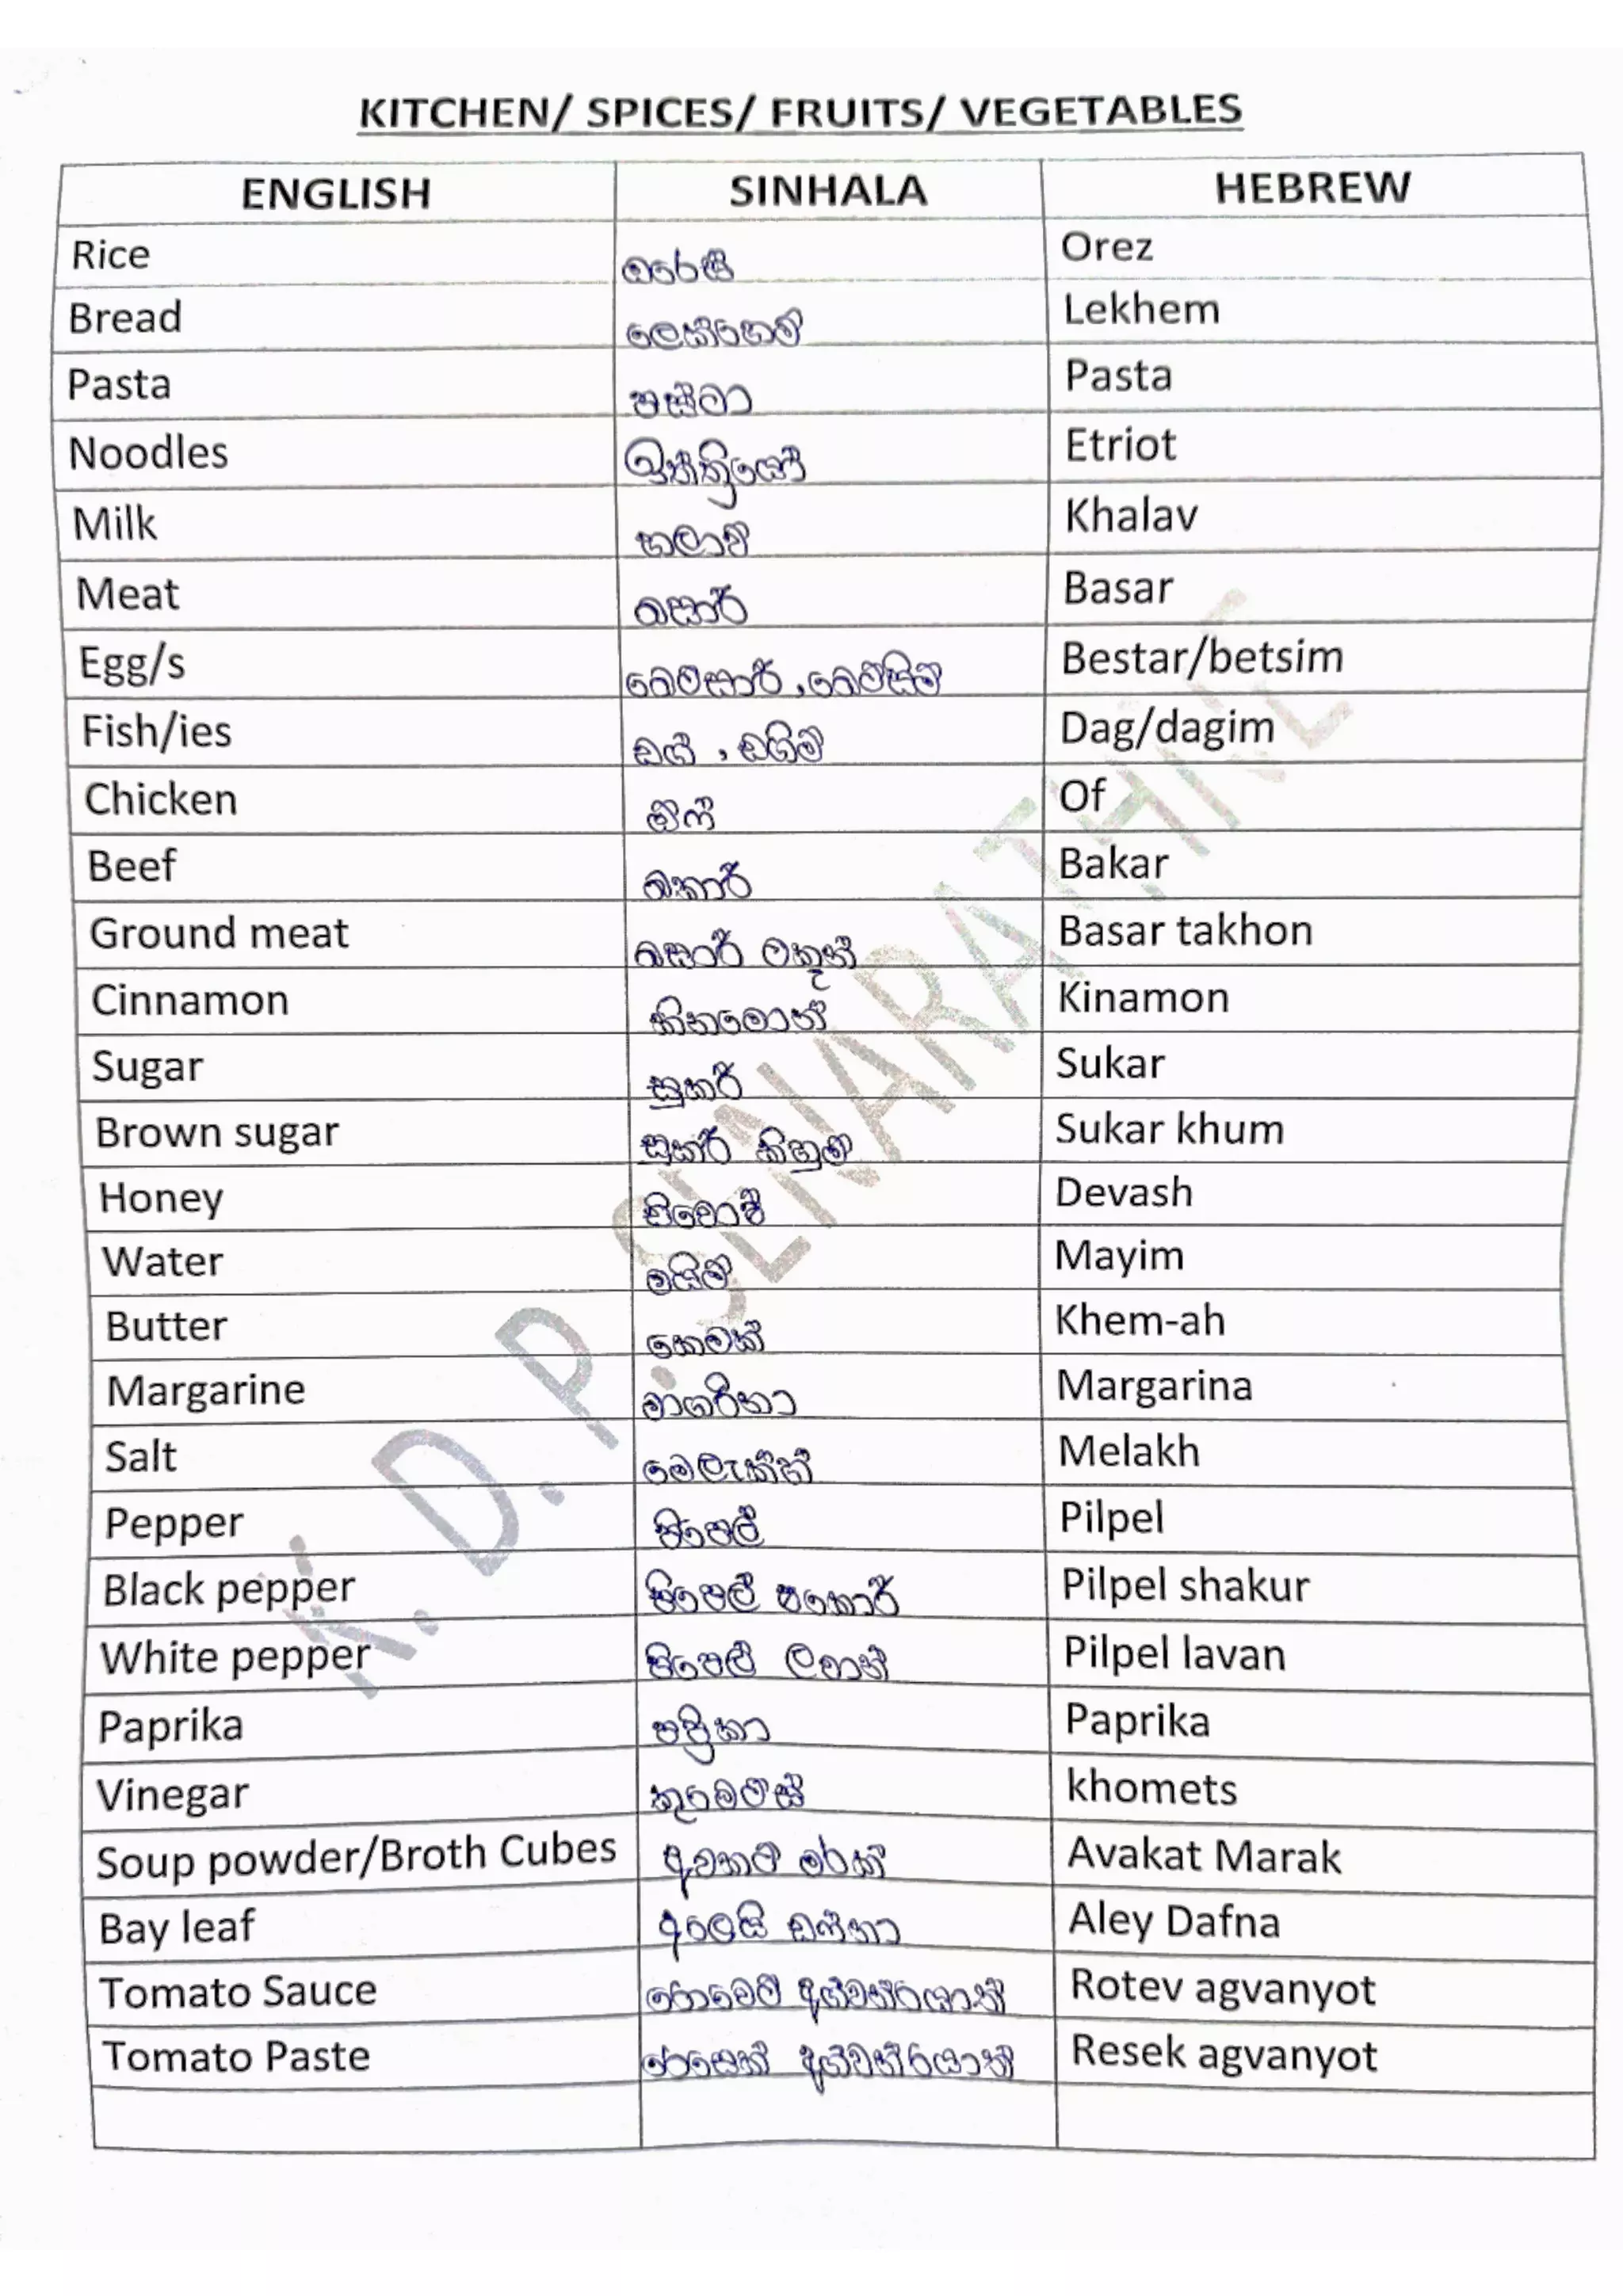 KITCHEN/ SPICES/ FRUITS/ VEGETABLES
ENGLISH SINHALA HEBREW
Rice ඔරෙස් Orez
Bread ලෙක්හෙම් Lekhem
Pasta පස්ටා Pasta
Noodles ඉත්ත්‍රියොේ Etriot
Milk හලාව් Khalav
Meat බසාර් Basar
Egg/s බෙට්සාර් , බෙට්සිම් Bestar/betsim
Fish/ies ඩග් , ඩගිම් Dag/dagim
Chicken ඕෆ් Of
Beef බකාර් Bakar
Ground meat බසාර් ටකූන් Basar takhon
Cinnamon කිනමොන් Kinamon
Sugar සුකර් Sukar
Brown sugar සුකර් Sukar khum
Honey Devash
Water මයිම් Mayim
Butter Khem-ah
Margarine මාගරිනා Margarina
Salt Melakh
Pepper පිපෙල් Pilpel
Black pepper පිපෙල් Pilpel shakur
White pepper පිපෙල් ලවාන් Pilpel lavan
Paprika පප්‍රිකා Paprika
Vinegar කුමෙට්ස් khomets
Soup powder/Broth Cubes අවකට් මරක් Avakat Marak
Bay leaf අලෙයි ඩෆ්නා Aley Dafna
Tomato Sauce Rotev agvanyot
Tomato Paste රෙසෙක් Resek agvanyot
K. D. P. SENARATHNE